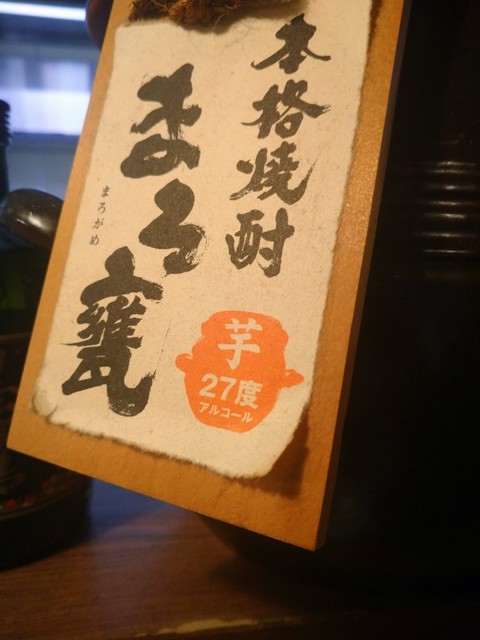 本格焼酎
まろ甕
まろがめ
芋
27度
アルコール